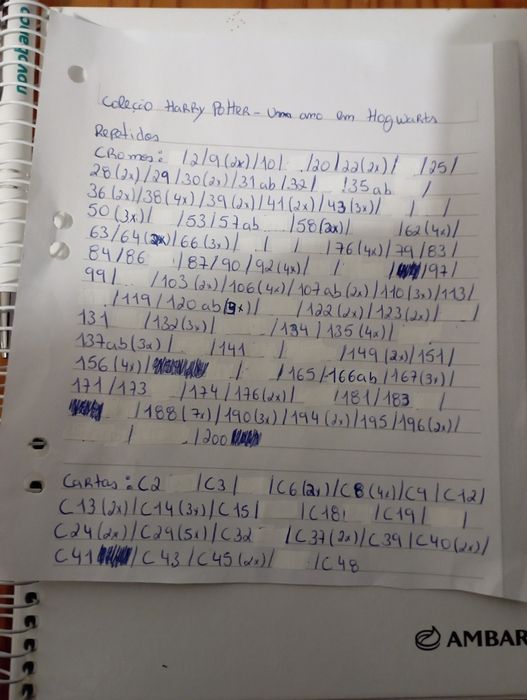 Coleção Harry Potter - Um ano em Hogwarts
Repetidos
Cromos: /2/9(2x)/10/ /20/22(2x)/ /25/
28(2x)/29/30(2x)/31ab/32/ /35ab /
36(2x)/38(4x)/39(2x)/41(2x)/43(3x)/ / /
50(3x)/ /53/57ab /58(2x)/ /62(4x)/
63/64(2x)/66(3x)/ / / /76(4x)/79/83/
84/86 /87/90/92(4x)/ / /97/
99/ /103(2x)/106(4x)/107ab(2x)/110(3x)/113/
/119/120ab(3x)/ /122(2x)/123(2x)/ /
131 /132(3x)/ /134/135(4x)/
137ab(3x)/ /141 / /149(2x)/151/
156(4x)/ / /165/166ab/167(3x)/
171/173 /174/176(2x)/ /181/183 /
/188(7x)/190(3x)/194(2x)/195/196(2x)/
/ /200
Cartas: C2 /C3/ /C6(2x)/C8(4x)/C9/C12/
C13(2x)/C14(3x)/C15/ /C18/ /C19/ /
C24(2x)/C29(5x)/C32 /C37(2x)/C39/C40(2x)/
C41 /C43/C45(2x)/ /C48
AMBAR